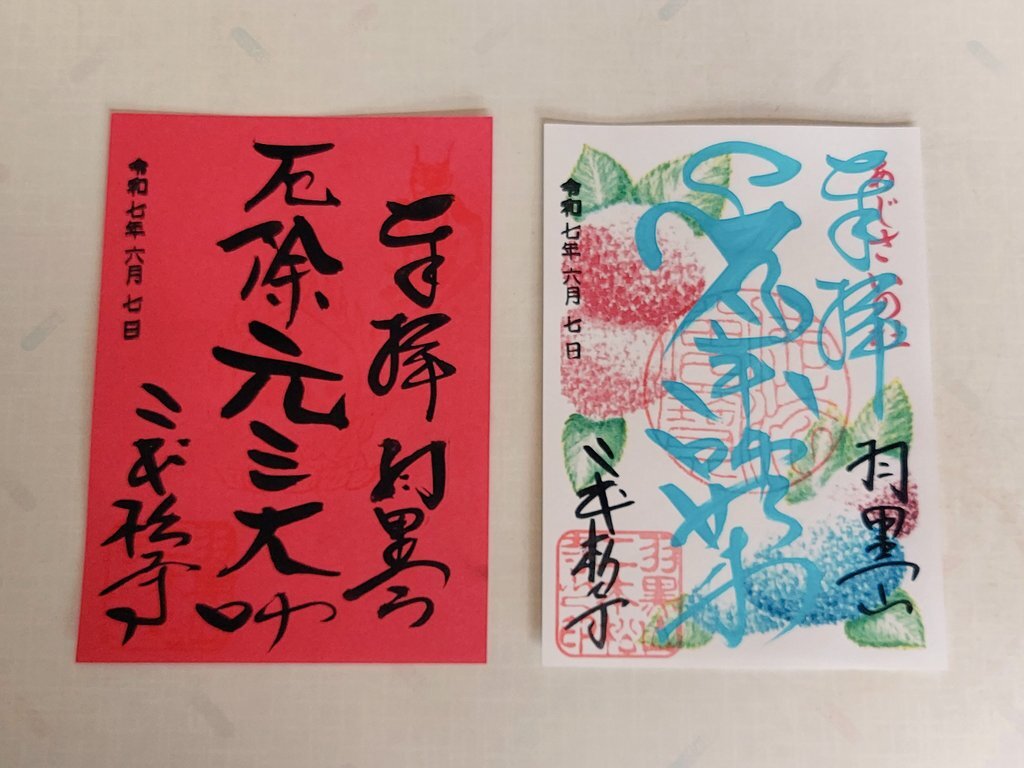 奉拝 羽黒山
厄除元三大師
二本松寺
令和七年六月七日
奉拝 羽黒山
薬師如来
二本松寺
令和七年六月七日
羽黒山
二本松
寺之印